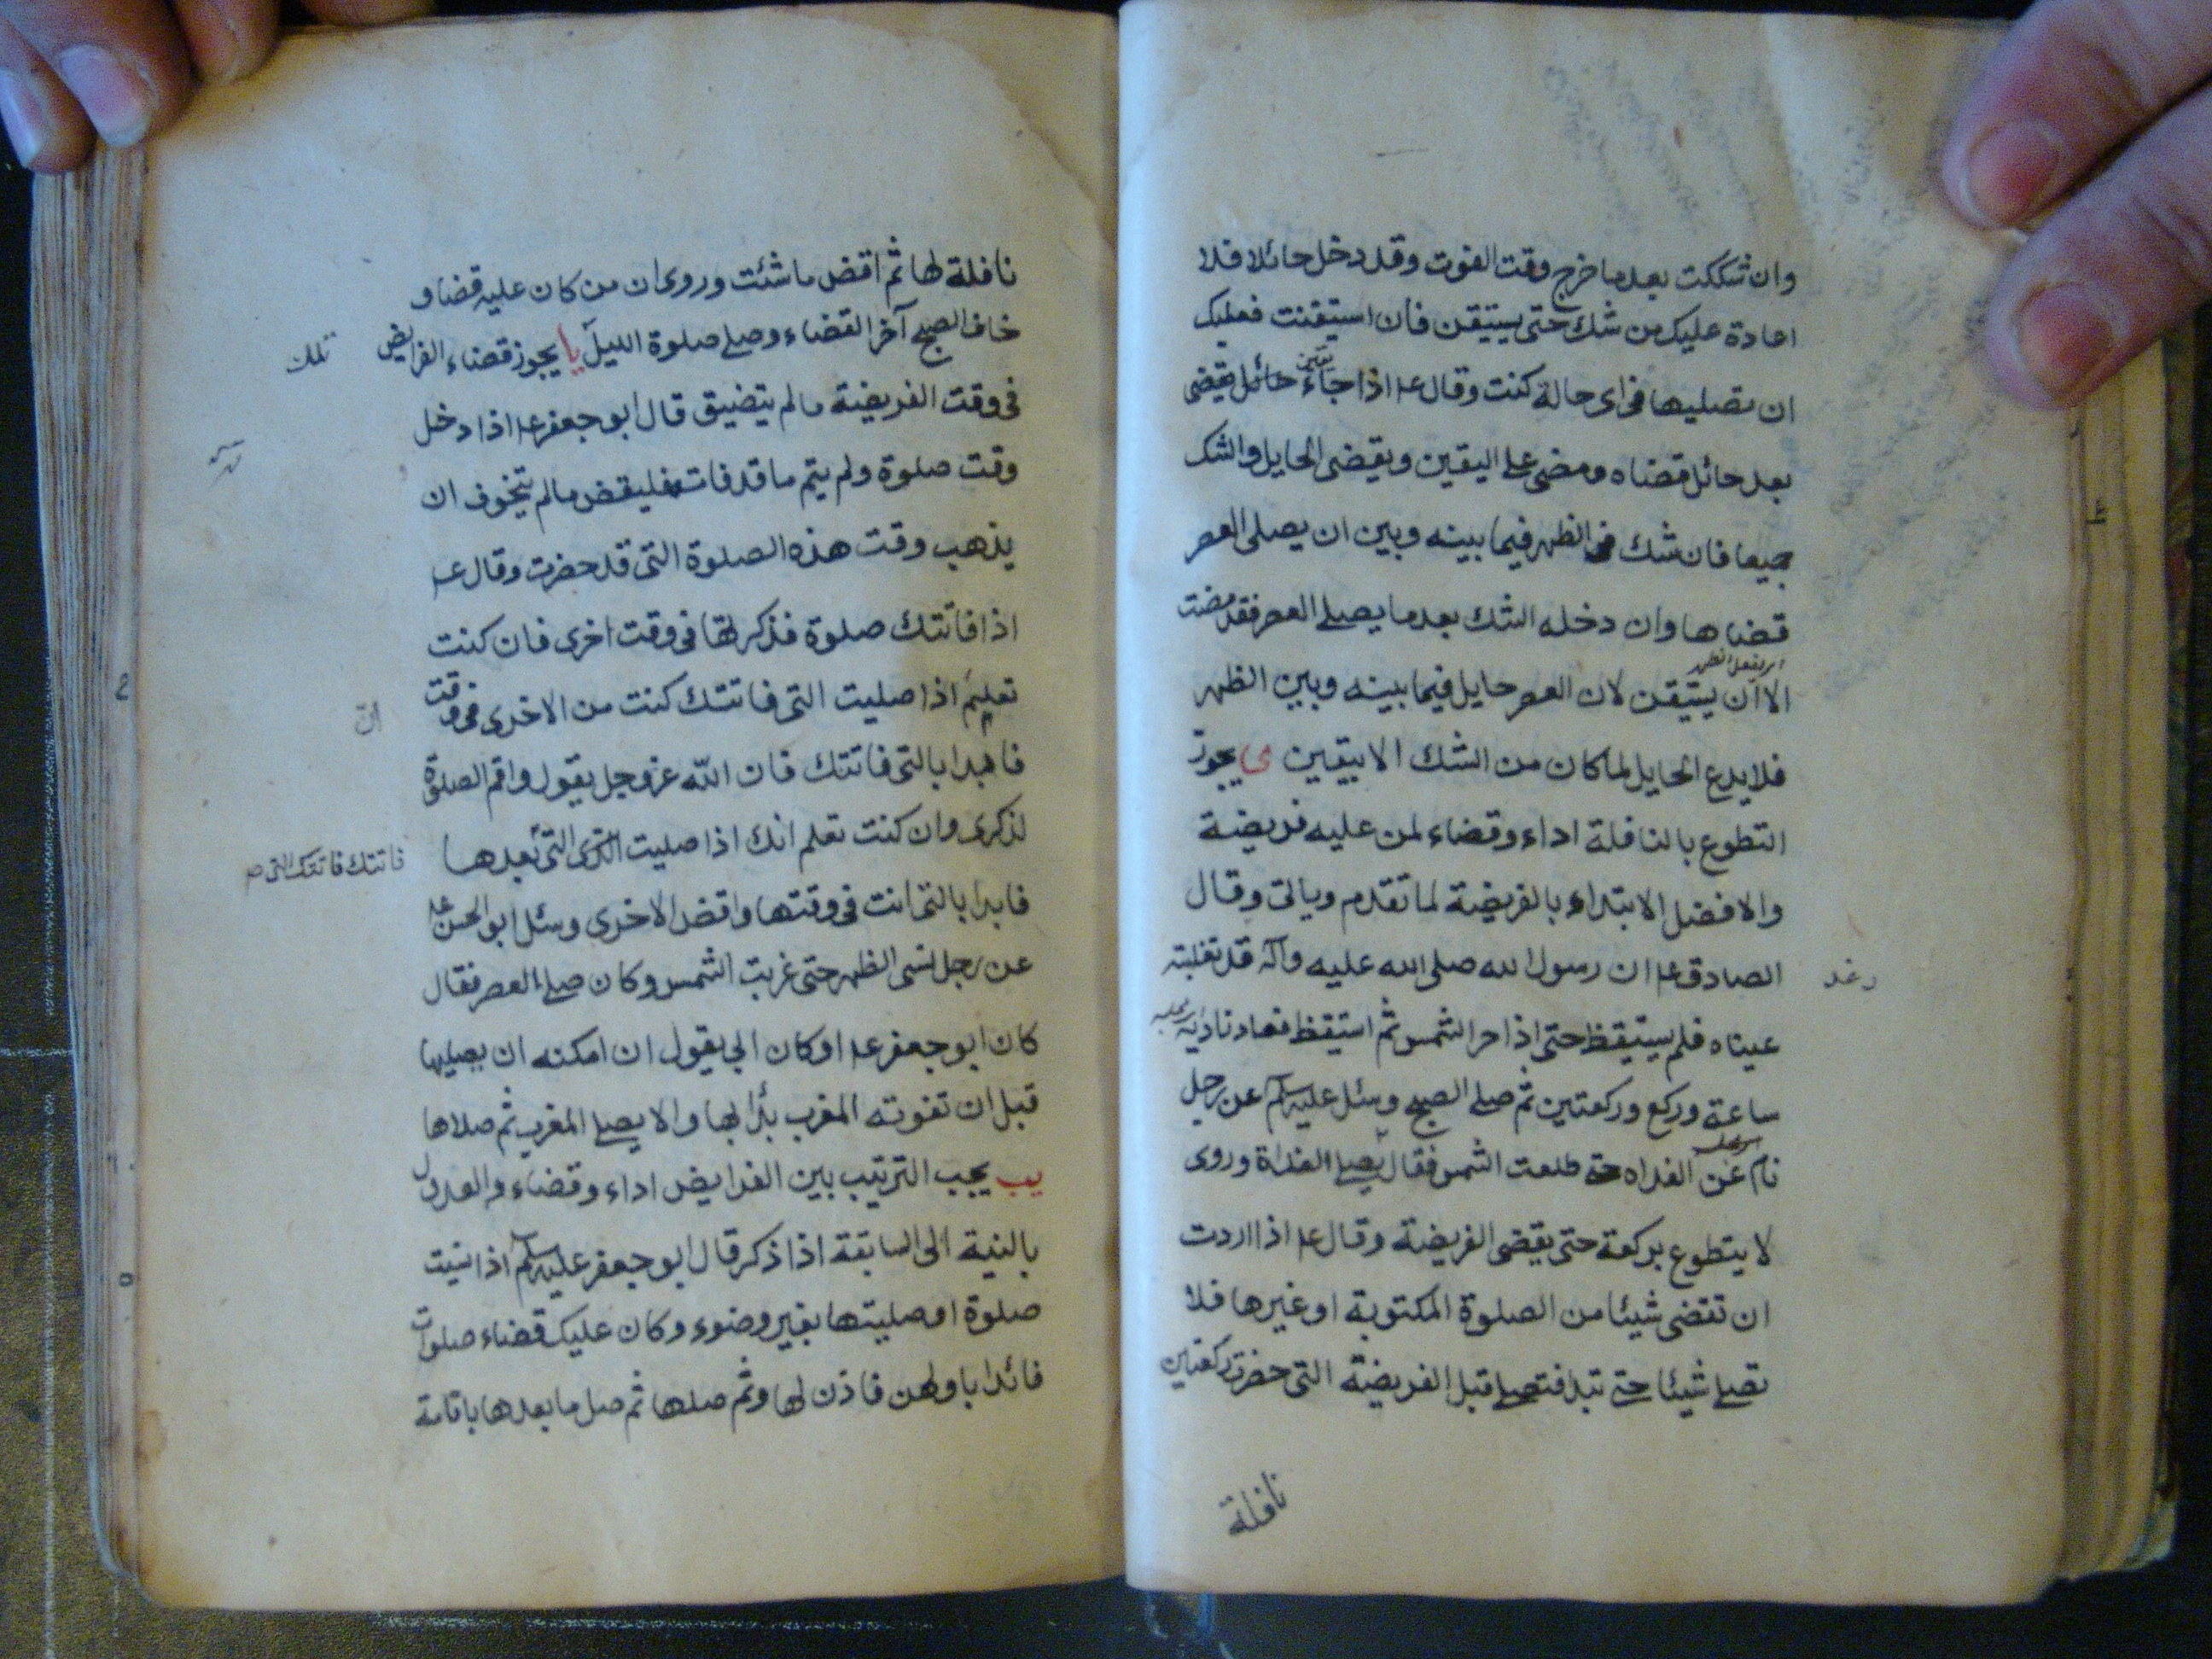 وان شككت بعد ما خرج وقت الفوت وقد دخل حائلا فلا
اعادة عليك من شك حتى يستيقن فان استيقنت فعليك
ان تصليها فى اى حالة كنت وقال ع اذا جاء يقين حائل يقضى
بعد حائل قضاه ومضى على اليقين ويقضى الحايل والشك
جميعا فان شك فى الظهر فيما بينه وبين ان يصلى العصر
قضاها وان دخله الشك بعد ما يصلى العصر فقد مضت
الا ان يستيقن لان العصر حايل فيما بينه وبين الظهر
فلا يدع الحايل لما كان من الشك الا بيقين ى يجوز
التطوع بالنافلة اداء وقضاء لمن عليه فريضة
والافضل الابتداء بالفريضة لما تقدم وياتى وقال
الصادق ع ان رسول الله صلى الله عليه وآله قد تغلبته
رغد
عيناه فلم يستيقظ حتى اذا حر الشمس ثم استيقظ فعاد ناديه
ساعة وركع وركعتين ثم صلى الصبح وسئل عليه السلم عن رجل
نام عن الغداه حتى طلعت الشمس فقال يصلى الغداة وروى
لا يتطوع بركعة حتى يقضى الفريضة وقال ع اذا اردت
ان تقضى شيئا من الصلوة المكتوبة او غيرها فلا
تصلى شيئا حتى تبدا فتصلى قبل الفريضة التى حضرت ركعتين
نافلة
نافلة لها ثم اقض ما شئت وروى ان من كان عليه قضا و
خاف الصبح آخر القضاء وصلى صلوة الليل يا يجوز قضاء الفرايض
تلك
فى وقت الفريضة ما لم يتضيق قال ابو جعفر ع اذا دخل
وقت صلوة ولم يتم ما قد فات فليقض ما لم يتخوف ان
يذهب وقت هذه الصلوة التى قد حضرت وقال ع
اذا فاتتك صلوة فذكرتها فى وقت اخرى فان كنت
تعلم اذا صليت التى فاتتك كنت من الاخرى فى وقت
ان
فابدا بالتى فاتتك فان الله عز وجل يقول واقم الصلوة
لذكرى وان كنت تعلم انك اذا صليت التى بعدها
فاتتك فاتتك التى
فابدا بالتى انت فى وقتها واقض الاخرى وسئل ابو الحسن ع
عن رجل نسى الظهر حتى غربت الشمس وكان صلى العصر فقال
كان ابو جعفر ع او كان ابى يقول ان امكنه ان يصليها
قبل ان تفوته المغرب بدا بها والا يصلى المغرب ثم صلاها
يب يجب الترتيب بين الفرايض اداء وقضاء والعدول
بالنية الى السابقة اذا ذكر قال ابو جعفر عليه السلم اذا نسيت
صلوة او صليتها بغير وضوء وكان عليك قضاء صلوات
فائدا باولهن فاذن لها وثم صلها ثم صل ما بعدها باقامة